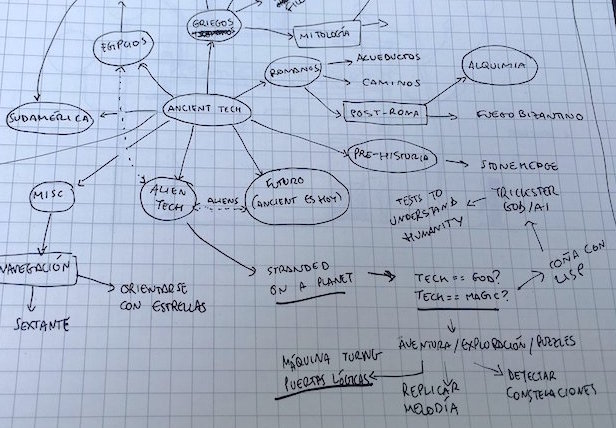 GRIEGOS
EGIPCIOS
MITOLOGÍA
ROMANOS
ACUEDUCTOS
CAMINOS
ALQUIMIA
SUDAMÉRICA
ANCIENT TECH
POST-ROMA
FUEGO BIZANTINO
PRE-HISTORIA
STONEHEDGE
MISC
ALIEN
TECH
ALIENS
FUTURO
(ANCIENT ES HOY)
TESTS TO
UNDERSTAND
HUMANITY
TRICKSTER
GOD/AI
COÑA CON
LISP
NAVEGACIÓN
ORIENTARSE
CON ESTRELLAS
SEXTANTE
STRANDED
ON A PLANET
TECH == GOD?
TECH == MAGIC?
AVENTURA/EXPLORACIÓN/PUZZLES
MÁQUINA TURING
PUERTAS LÓGICAS
REPLICAR
MELODÍA
DETECTAR
CONSTELACIONES